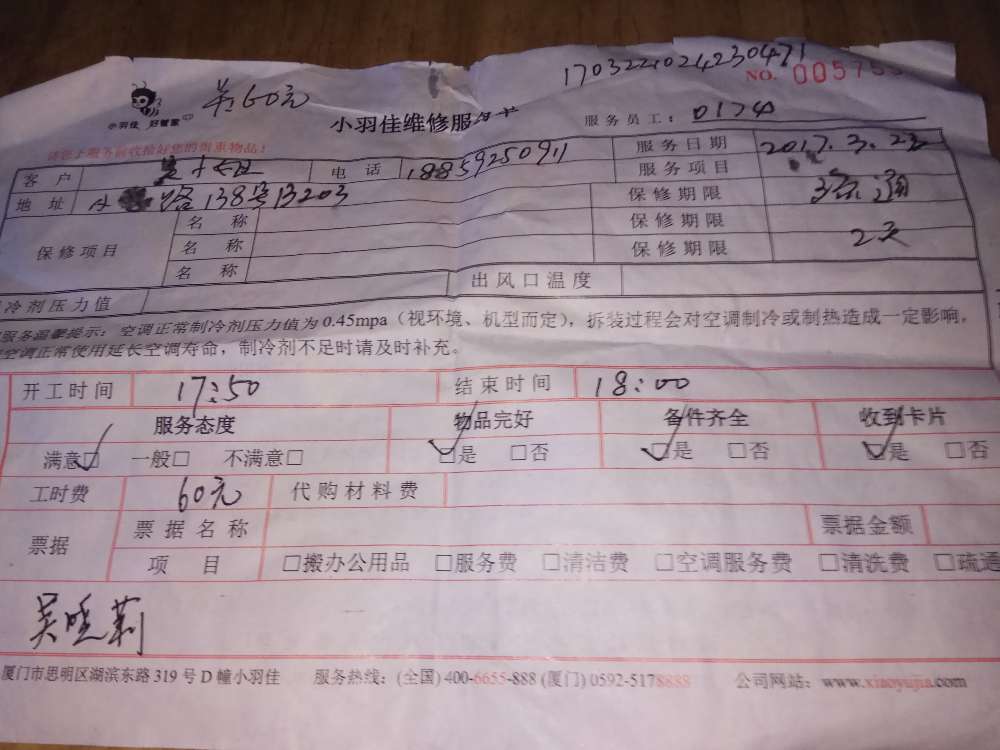 1703221024230471
NO. 00575
小羽佳 好管家
60元
小羽佳维修服
服务员工: 0174
请您上服务前收拾好您的贵重物品!
客户 电话 18859250911 服务日期 2017.3.22
服务项目
地址 138号13203 保修期限
保修项目 名称 保修期限
名称 保修期限 2天
名称 出风口温度
冷剂压力值
服务温馨提示: 空调正常制冷剂压力值为0.45mpa (视环境、机型而定), 拆装过程会对空调制冷或制热造成一定影响,
空调正常使用延长空调寿命, 制冷剂不足时请及时补充。
开工时间 17:50 结束时间 18:00
服务态度 物品完好 备件齐全 收到卡片
满意□ 一般□ 不满意□ □是 □否 □是 □否 □是 □否
工时费 60元 代购材料费
票据 票据名称 票据金额
项目 □搬办公用品 □服务费 □清洁费 □空调服务费 □清洗费 □疏通
吴晓莉
厦门市思明区湖滨东路319号D幢小羽佳 服务热线: (全国) 400-6655-888 (厦门) 0592-5178888 公司网站: www.xiaoyujia.com